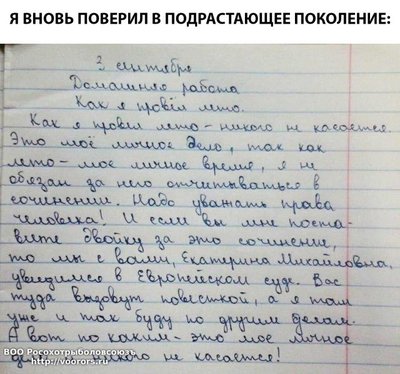 Я ВНОВЬ ПОВЕРИЛ В ПОДРАСТАЮЩЕЕ ПОКОЛЕНИЕ:
3 сентября
Домашняя работа
Как я провёл лето.
Как я провел лето - никого не касается.
Это моё личное дело, так как
лето - мое личное время, я не
обязан за него отчитываться в
сочинении. Надо уважать права
человека! И если вы мне поста-
вите двойку за это сочинение,
то мы с вами, Екатерина Михайловна,
увидимся в Европейском суде. Вас
туда вызовут повесткой, а я там
уже и так буду по другим делам.
А вот по каким - это мое личное
дело и никого не касается!
ВОО Росохотрыболовсоюзъ
http://voorors.ru